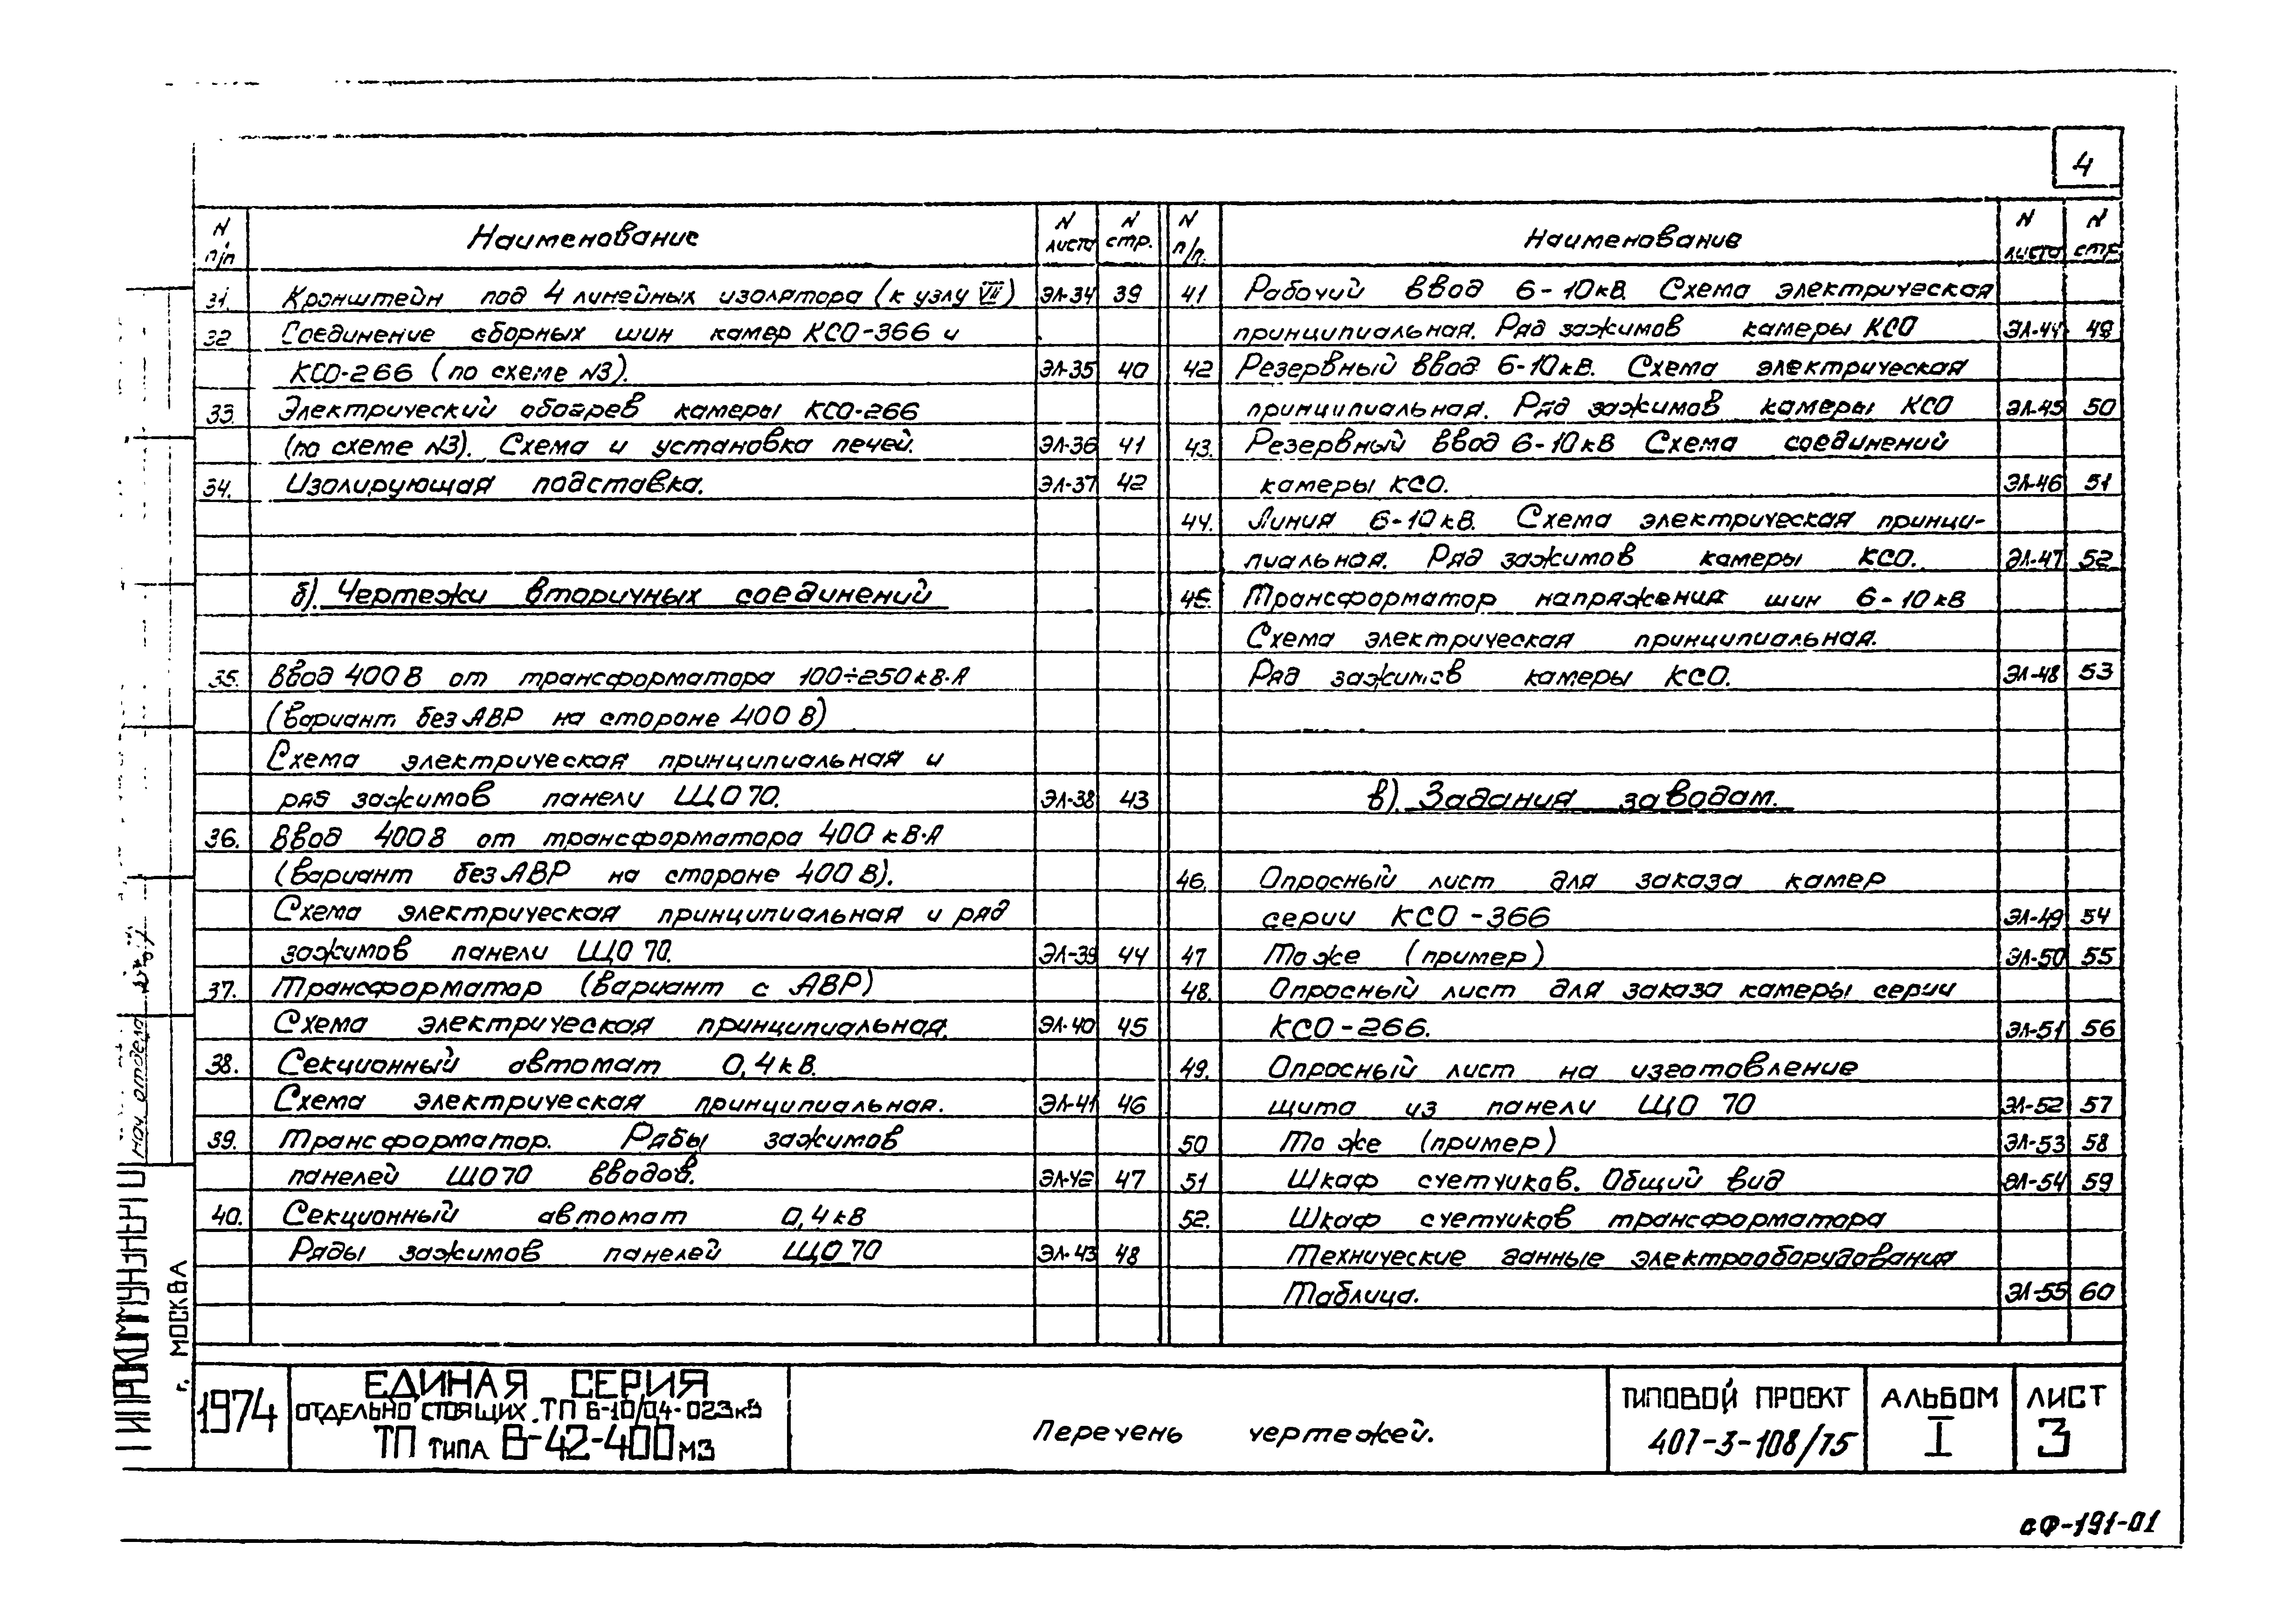 4
N п/п Наименование N листа N стр.
31. Кронштейн под 4 линейных изолятора (к узлу VII) ЭЛ-34 39
32 Соединение сборных шин камер КСО-366 и
КСО-266 (по схеме N3). ЭЛ-35 40
33. Электрический обогрев камеры КСО-266
(по схеме N3). Схема и установка печей. ЭЛ-36 41
34. Изолирующая подставка. ЭЛ-37 42
б). Чертежи вторичных соединений
35. Ввод 400 В от трансформатора 100÷250 кВ·А
(вариант без АВР на стороне 400 В)
Схема электрическая принципиальная и
ряд зажимов панели ЩО 70. ЭЛ-38 43
36. Ввод 400 В от трансформатора 400 кВ·А
(вариант без АВР на стороне 400 В).
Схема электрическая принципиальная и ряд
зажимов панели ЩО 70. ЭЛ-39 44
37. Трансформатор (вариант с АВР)
Схема электрическая принципиальная. ЭЛ-40 45
38. Секционный автомат 0,4 кВ.
Схема электрическая принципиальная. ЭЛ-41 46
39. Трансформатор. Ряды зажимов
панелей ЩО 70 вводов. ЭЛ-42 47
40. Секционный автомат 0,4 кВ
Ряды зажимов панелей ЩО 70 ЭЛ-43 48
N п/п. Наименование N листа N стр
41 Рабочий ввод 6-10 кВ. Схема электрическая
принципиальная. Ряд зажимов камеры КСО ЭЛ-44 49
42 Резервный ввод 6-10 кВ. Схема электрическая
принципиальная. Ряд зажимов камеры КСО ЭЛ-45 50
43. Резервный ввод 6-10 кВ Схема соединений
камеры КСО. ЭЛ-46 51
44. Линия 6-10 кВ. Схема электрическая принци-
пиальная. Ряд зажимов камеры КСО. ЭЛ-47 52
45. Трансформатор напряжения шин 6-10 кВ
Схема электрическая принципиальная.
Ряд зажимов камеры КСО. ЭЛ-48 53
в). Задания заводам.
46. Опросный лист для заказа камер
серии КСО-366 ЭЛ-49 54
47 То же (пример) ЭЛ-50 55
48. Опросный лист для заказа камеры серии
КСО-266. ЭЛ-51 56
49. Опросный лист на изготовление
щита из панели ЩО 70 ЭЛ-52 57
50 То же (пример) ЭЛ-53 58
51 Шкаф счетчиков. Общий вид ЭЛ-54 59
52. Шкаф счетчиков трансформатора
Технические данные электрооборудования
Таблица. ЭЛ-55 60
Нач. отдела
ГИПРОКОММУНЭНЕРГО
г. МОСКВА
1974
ЕДИНАЯ СЕРИЯ
ОТДЕЛЬНО СТОЯЩИХ ТП 6-10/0,4-023кВ
ТП ТИПА В-42-400 М3
Перечень чертежей.
ТИПОВОЙ ПРОЕКТ
407-3-108/75
АЛЬБОМ
I
ЛИСТ
3
СФ-191-01